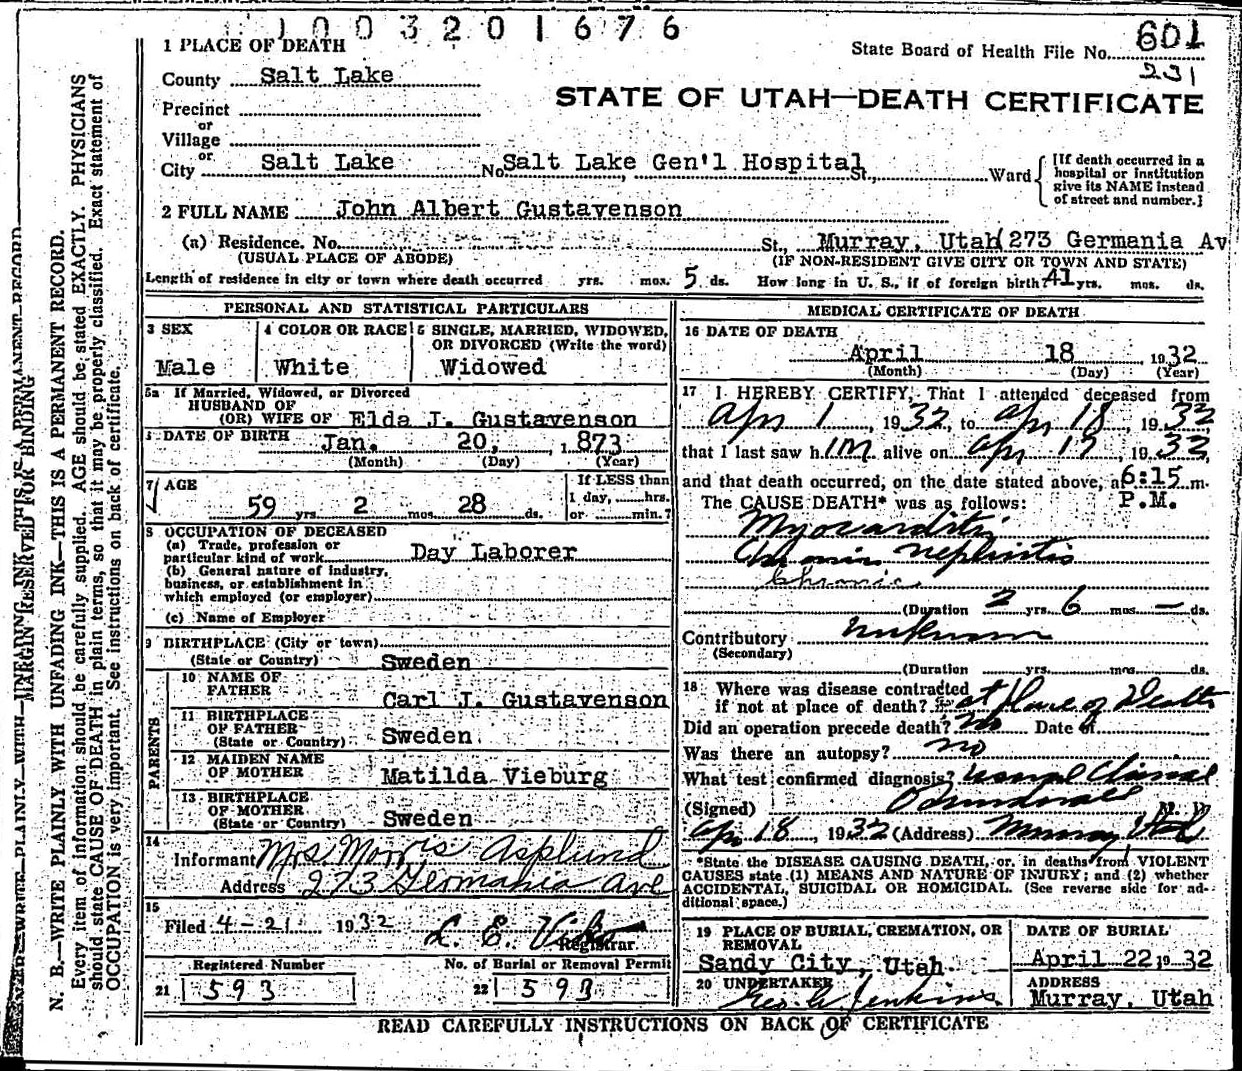 1003201676
1 PLACE OF DEATH
State Board of Health File No. 601
231
County Salt Lake
STATE OF UTAH—DEATH CERTIFICATE
Precinct
or
Village
or
City Salt Lake No. Salt Lake Gen'l Hospital St., Ward
[If death occurred in a
hospital or institution
give its NAME instead
of street and number.]
2 FULL NAME John Albert Gustavenson
(a) Residence. No. St., Murray, Utah (273 Germania Av
(USUAL PLACE OF ABODE) (IF NON-RESIDENT GIVE CITY OR TOWN AND STATE)
Length of residence in city or town where death occurred yrs. mos. 5 ds. How long in U. S., if of foreign birth? 41 yrs. mos. ds.
PERSONAL AND STATISTICAL PARTICULARS
3 SEX
Male
4 COLOR OR RACE
White
5 SINGLE, MARRIED, WIDOWED,
OR DIVORCED (Write the word)
Widowed
5a If Married, Widowed, or Divorced
HUSBAND OF
(OR) WIFE OF Elda J. Gustavenson
DATE OF BIRTH Jan. 20, 1873
(Month) (Day) (Year)
7 AGE
59 yrs. 2 mos. 28 ds.
If LESS than
1 day, hrs.
or min.?
8 OCCUPATION OF DECEASED
(a) Trade, profession or
particular kind of work Day Laborer
(b) General nature of Industry,
business, or establishment in
which employed (or employer)
(c) Name of Employer
9 BIRTHPLACE (City or town)
(State or Country) Sweden
PARENTS
10 NAME OF
FATHER Carl J. Gustavenson
11 BIRTHPLACE
OF FATHER
(State or Country) Sweden
12 MAIDEN NAME
OF MOTHER Matilda Vieburg
13 BIRTHPLACE
OF MOTHER
(State or Country) Sweden
14
Informant Mrs. Morris Asplund
Address 273 Germania Ave
15
Filed 4-21 1932 L. E.
Registrar
Registered Number No. of Burial or Removal Permit
21 593 22 593
MEDICAL CERTIFICATE OF DEATH
16 DATE OF DEATH
April 18 1932
(Month) (Day) (Year)
17 I HEREBY CERTIFY, That I attended deceased from
Apr 1, 1932, to Apr 18, 1932
that I last saw him alive on Apr 17, 1932,
and that death occurred, on the date stated above, a 6:15 m.
The CAUSE DEATH* was as follows: P.M.
Myocarditis
Chronic nephritis
Chronic
(Duration 2 yrs. 6 mos. — ds.
Contributory unknown
(Secondary)
(Duration yrs. mos. ds.
18 Where was disease contracted
if not at place of death? at place of Death
Did an operation precede death? No Date of
Was there an autopsy? no
What test confirmed diagnosis? usual Clinical
(Signed) M. D
Apr 18, 1932 (Address) Murray Utah
*State the DISEASE CAUSING DEATH, or, in deaths from VIOLENT
CAUSES state (1) MEANS AND NATURE OF INJURY; and (2) whether
ACCIDENTAL, SUICIDAL OR HOMICIDAL. (See reverse side for ad-
ditional space.)
19 PLACE OF BURIAL, CREMATION, OR
REMOVAL
Sandy City, Utah
DATE OF BURIAL
April 22, 1932
20 UNDERTAKER
Jenkins
ADDRESS
Murray, Utah
READ CAREFULLY INSTRUCTIONS ON BACK OF CERTIFICATE
MARGIN RESERVED FOR BINDING
N. B.—WRITE PLAINLY WITH UNFADING INK—THIS IS A PERMANENT RECORD.
Every item of information should be carefully supplied. AGE should be stated EXACTLY. PHYSICIANS
should state CAUSE OF DEATH in plain terms, so that it may be properly classified. Exact statement of
OCCUPATION is very important. See instructions on back of certificate.